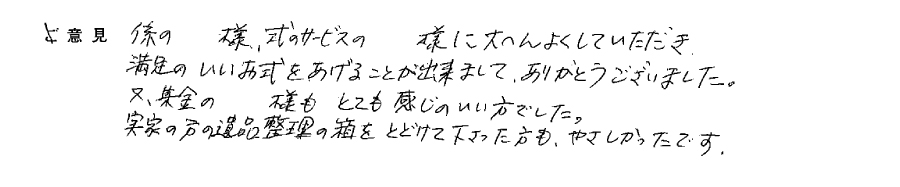 ご意見 係の 様、式のサービスの 様に大へんよくしていただき、
満足のいいお式をあげることが出来まして、ありがとうございました。
又、集金の 様も とても感じのいい方でした。
実家の方の遺品整理の箱をとどけて下さった方も、やさしかったです.